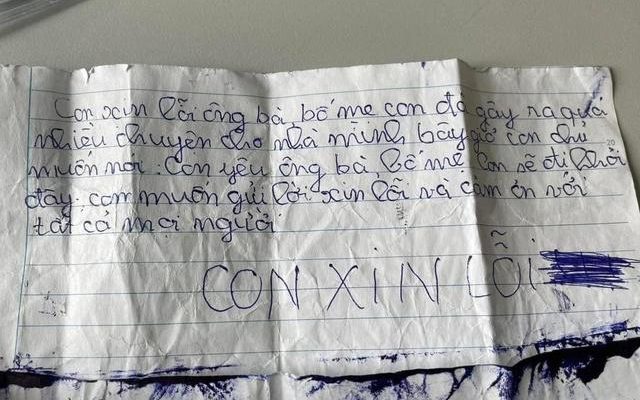 Con xin lỗi ông bà, bố mẹ con đã gây ra quá
nhiều chuyện cho nhà mình bây giờ con chỉ
muốn nói: Con yêu ông bà, bố mẹ. Con sẽ đi khỏi
đây, con muốn gửi lời xin lỗi và cảm ơn với
tất cả mọi người
CON XIN LỖI